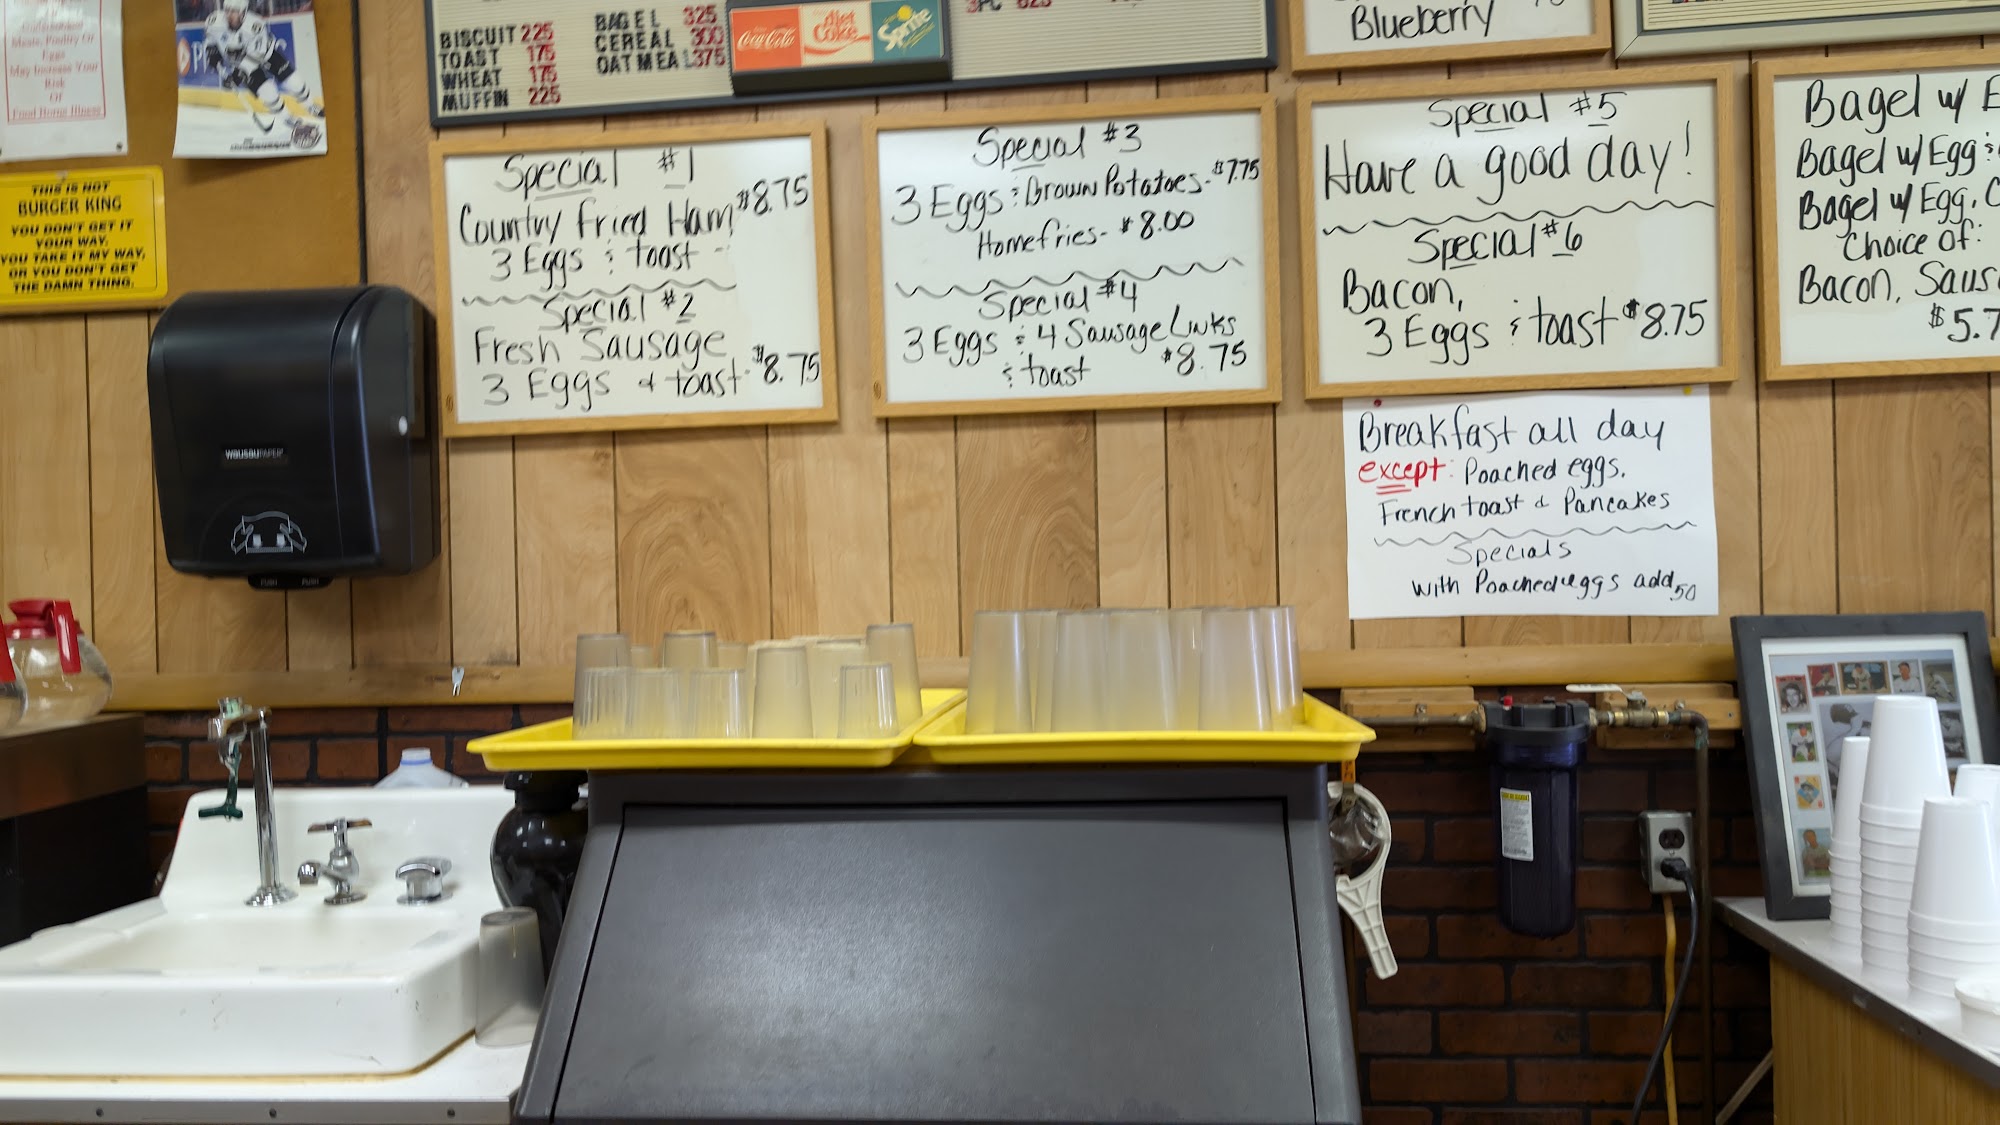 Meats, Poultry Or
Eggs
May Increase Your
Risk
Of
Food Borne Illness
THIS IS NOT
BURGER KING
YOU DON'T GET IT
YOUR WAY.
YOU TAKE IT MY WAY,
OR YOU DON'T GET
THE DAMN THING.
BISCUIT 225
TOAST 175
WHEAT 175
MUFFIN 225
BAGEL 325
CEREAL 300
OATMEAL 375
Coca-Cola
diet Coke
Sprite
3PC 625
Blueberry
Special #1
Country Fried Ham $8.75
3 Eggs & toast -
Special #2
Fresh Sausage
3 Eggs & toast - $8.75
Special #3
3 Eggs & Brown Potatoes - $7.75
Homefries - $8.00
Special #4
3 Eggs & 4 Sausage Links
& toast $8.75
Special #5
Have a good day!
Special #6
Bacon,
3 Eggs & toast $8.75
Bagel w/
Bagel w/ Egg &
Bagel w/ Egg,
Choice of:
Bacon,
Breakfast all day
except: Poached eggs,
French toast & Pancakes
Specials
with Poached eggs add 50
WAUSAUPAPER
PUSH PUSH